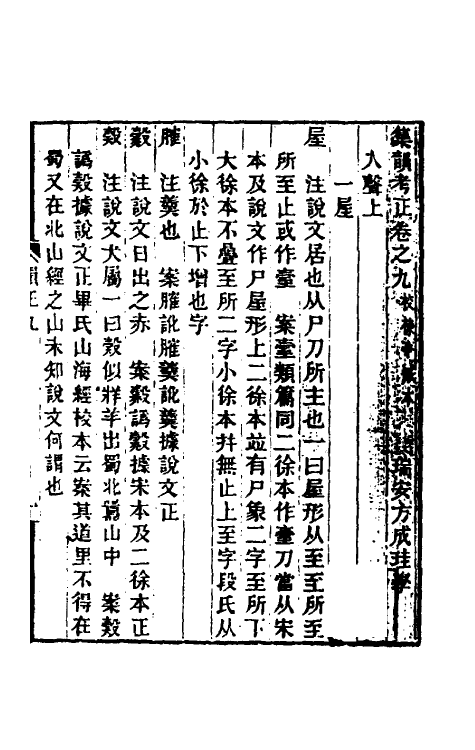 集韻考正卷之九 瑞安方成珪學
入聲上
一屋
屋 注說文居也从尸刀所主也一曰屋形从至至所至
所至止或作臺 案臺類篇同二徐本作臺刀當从宋
本及說文作尸屋形上二徐本竝有尸象二字至所下
大徐本不疊至所二字小徐本幷無止上至字段氏从
小徐於止下增也字
䐨 注羹也 案䐨訛䐨羹訛羹據說文正
縠 注說文日出之赤 案縠譌縠據宋本及二徐本正
縠 注說文犬屬一曰縠似牂羊出蜀北嚻山中 案縠
譌縠據說文正畢氏山海經校本云案其道里不得在
蜀又在北山經之山未知說文何謂也